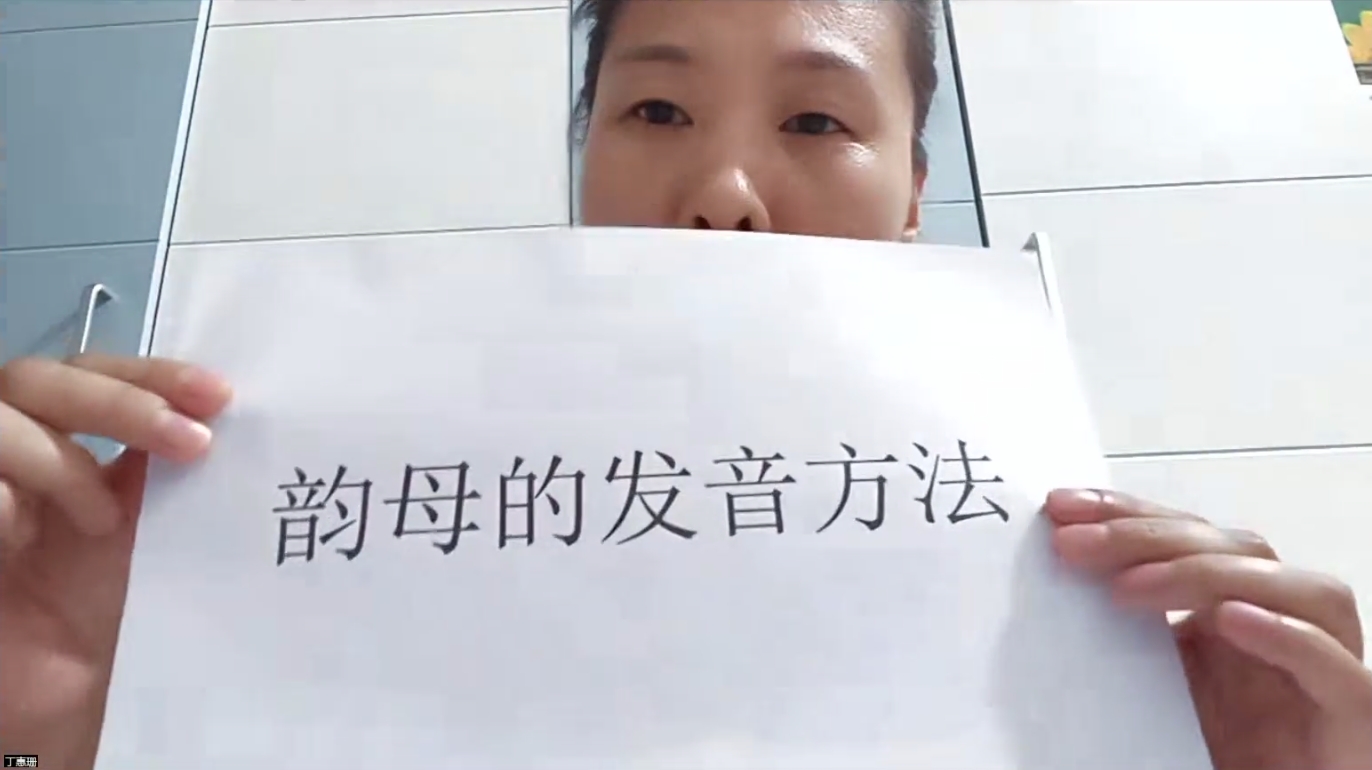 韵母的发音方法
丁惠珊